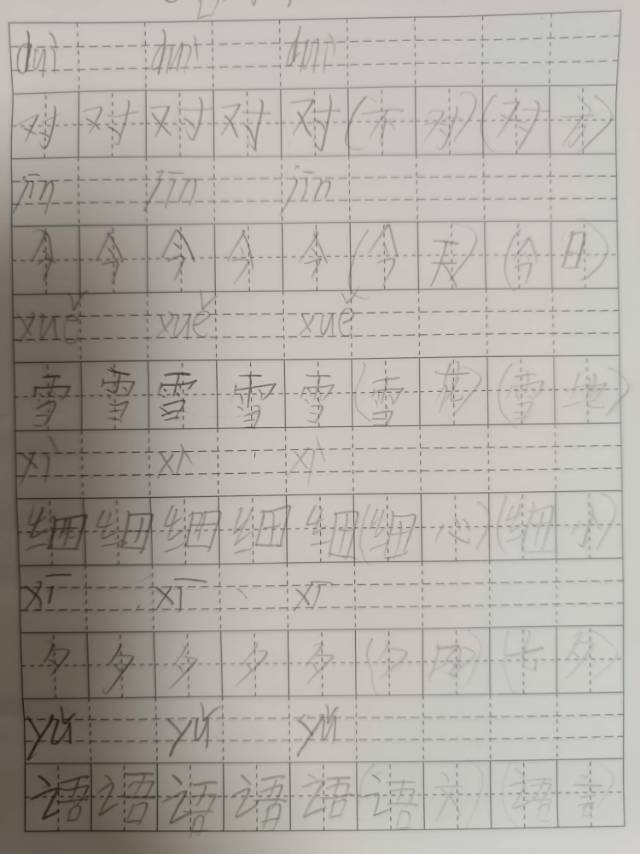 duì duì duì
对 对 对 对 对 (不 对) (对 方)
jīn jīn jīn
今 今 今 今 今 (今 天) (今 日)
xuě xuě xuě
雪 雪 雪 雪 雪 (雪 花) (雪 地)
xì xì xì
细 细 细 细 细 (细 心) (细 小)
xī xī xī
夕 夕 夕 夕 夕 (夕 阳) (七 夕)
yǔ yǔ yǔ
语 语 语 语 语 (语 文) (语 言)